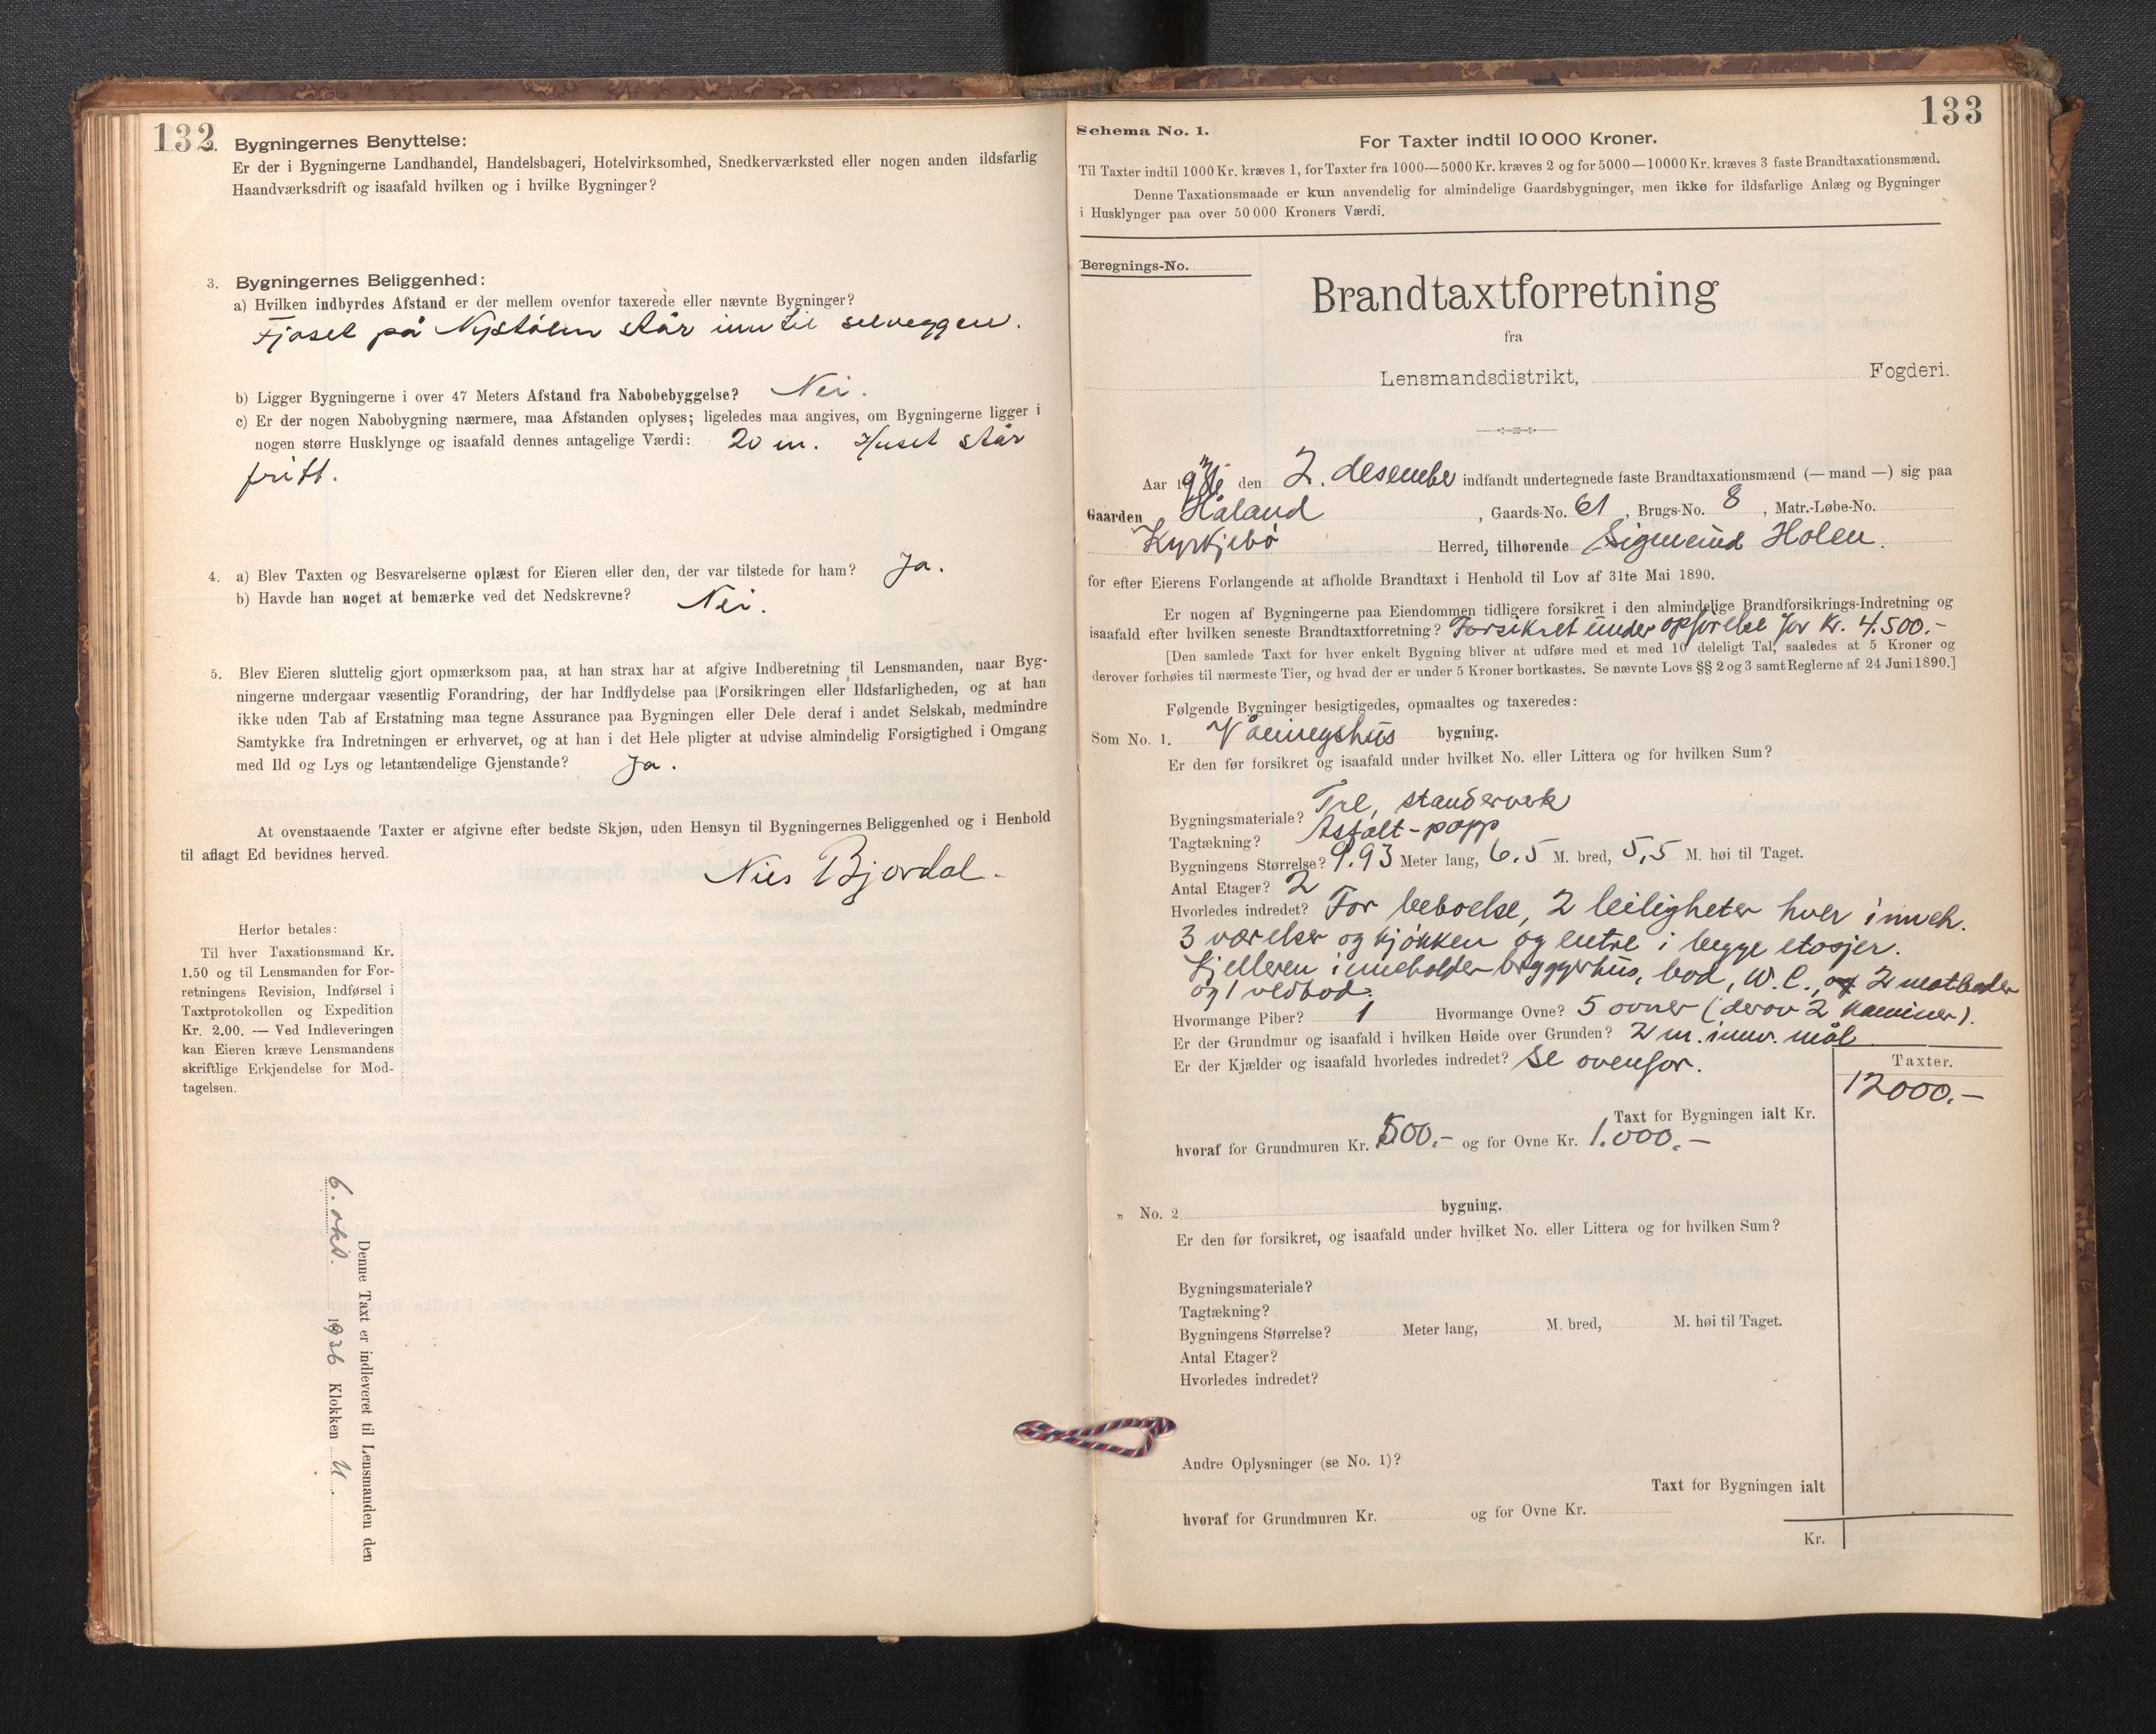 132
2. Bygningernes Benyttelse:
Er der i Bygningerne Landhandel, Handelsbageri, Hotelvirksomhed, Snedkerværksted eller nogen anden ildsfarlig
Haandværksdrift og isaafald hvilken og i hvilke Bygninger?
3. Bygningernes Beliggenhed:
a) Hvilken indbyrdes Afstand er der mellem ovenfor taxerede eller nævnte Bygninger?
Fjøset på Nystølen står inn til selveggen.
b) Ligger Bygningerne i over 47 Meters Afstand fra Nabobebyggelse? Nei.
c) Er der nogen Nabobygning nærmere, maa Afstanden oplyses; ligeledes maa angives, om Bygningerne ligger i
nogen større Husklynge og isaafald dennes antagelige Værdi: 20 m. Huset står
fritt.
4. a) Blev Taxten og Besvarelserne oplæst for Eieren eller den, der var tilstede for ham? Ja.
b) Havde han noget at bemærke ved det Nedskrevne? Nei.
5. Blev Eieren sluttelig gjort opmærksom paa, at han strax har at afgive Indberetning til Lensmanden, naar Byg-
ningerne undergaar væsentlig Forandring, der har Indflydelse paa Forsikringen eller Ildsfarligheden, og at han
ikke uden Tab af Erstatning maa tegne Assurance paa Bygningen eller Dele deraf i andet Selskab, medmindre
Samtykke fra Indretningen er erhvervet, og at han i det Hele pligter at udvise almindelig Forsigtighed i Omgang
med Ild og Lys og letantændelige Gjenstande? Ja.
At ovenstaaende Taxter er afgivne efter bedste Skjøn, uden Hensyn til Bygningernes Beliggenhed og i Henhold
til aflagt Ed bevidnes herved.
Nils Bjordal.
Herfor betales:
Til hver Taxationsmand Kr.
1.50 og til Lensmanden for For-
retningens Revision, Indførsel i
Taxtprotokollen og Expedition
Kr. 2.00. — Ved Indleveringen
kan Eieren kræve Lensmandens
skriftlige Erkjendelse for Mod-
tagelsen.
Denne Taxt er indleveret til Lensmanden den
6. okt. 1936 Klokken
133
Schema No. 1.
For Taxter indtil 10 000 Kroner.
Til Taxter indtil 1000 Kr. kræves 1, for Taxter fra 1000—5000 Kr. kræves 2 og for 5000—10000 Kr. kræves 3 faste Brandtaxationsmænd.
Denne Taxationsmaade er kun anvendelig for almindelige Gaardsbygninger, men ikke for ildsfarlige Anlæg og Bygninger
i Husklynger paa over 50 000 Kroners Værdi.
Beregnings-No.
Brandtaxtforretning
fra
Lensmandsdistrikt, Fogderi.
Aar den 2. desember indfandt undertegnede faste Brandtaxationsmænd (— mand —) sig paa
Gaarden Håland, Gaards-No. 61, Brugs-No. 8, Matr.-Løbe-No.
Kyrkjebø Herred, tilhørende Sigmund Holen.
for efter Eierens Forlangende at afholde Brandtaxt i Henhold til Lov af 31te Mai 1890.
Er nogen af Bygningerne paa Eiendommen tidligere forsikret i den almindelige Brandforsikrings-Indretning og
isaafald efter hvilken seneste Brandtaxtforretning? Forsikret under opførelse for kr. 4.500.-
[Den samlede Taxt for hver enkelt Bygning bliver at udføre med et med 10 deleligt Tal, saaledes at 5 Kroner og
derover forhøies til nærmeste Tier, og hvad der er under 5 Kroner bortkastes. Se nævnte Lovs §§ 2 og 3 samt Reglerne af 24 Juni 1890.]
Følgende Bygninger besigtigedes, opmaaltes og taxeredes:
Som No. 1. Våningshus bygning.
Er den før forsikret og isaafald under hvilket No. eller Littera og for hvilken Sum?
Bygningsmateriale? Tre, standerverk
Tagtækning? Asfalt-papp
Bygningens Størrelse? 9.93 Meter lang, 6.5 M. bred, 5,5 M. høi til Taget.
Antal Etager? 2
Hvorledes indredet? For beboelse, 2 leiligheter hver inneh.
3 værelser og kjøkken og entre i begge etasjer.
Kjelleren inneholder bryggerhus, bod, W.C., og 2 matboder
og 1 vedbod.
Hvormange Piber? 1 Hvormange Ovne? 5 ovner (derav 2 kaminer).
Er der Grundmur og isaafald i hvilken Høide over Grunden? 2 m. innv. mål
Er der Kjælder og isaafald hvorledes indredet? Se ovenfor.
Taxter.
12000.-
Taxt for Bygningen ialt Kr.
hvoraf for Grundmuren Kr. 500.- og for Ovne Kr. 1.000.-
„ No. 2 bygning.
Er den før forsikret, og isaafald under hvilket No. eller Littera og for hvilken Sum?
Bygningsmateriale?
Tagtækning?
Bygningens Størrelse? Meter lang, M. bred, M. høi til Taget.
Antal Etager?
Hvorledes indredet?
Andre Oplysninger (se No. 1)?
Taxt for Bygningen ialt
hvoraf for Grundmuren Kr. og for Ovne Kr.
Kr.